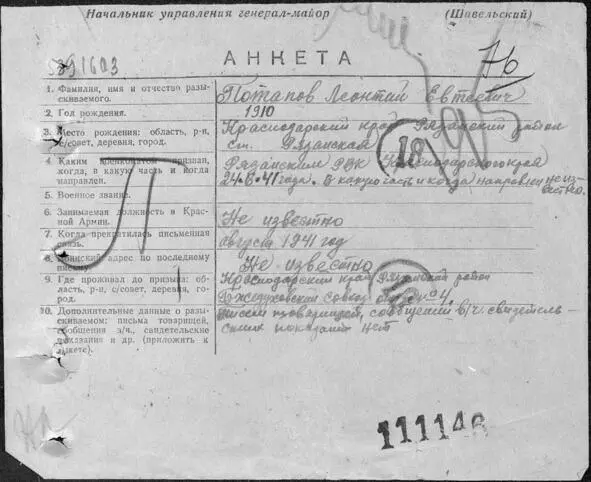 Начальник управления генерал-майор (Шавельский)
76
5891603
АНКЕТА
1. Фамилия, имя и отчество разы-
скиваемого.
Потапов Леонтий Евтеевич
2. Год рождения.
1910
3. Место рождения: область, р-н,
с/совет, деревня, город.
Краснодарский край Рязанский район
ст. Рязанская
18
4. Каким военкоматом призван,
когда, в какую часть и когда
направлен.
Рязанским РВК Краснодарского края
24.6.41 года. В какую часть и когда направлен неиз-
вестно.
5. Военное звание.
6. Занимаемая должность в Крас-
ной Армии.
Не известно
7. Когда прекратилась письменная
связь.
август 1941 год
8. Воинский адрес по последнему
письму.
Не известно
9. Где проживал до призыва: об-
ласть, р-н, с/совет, деревня, го-
род.
Краснодарский край Рязанский район
совхоз №4
10. Дополнительные данные о разы-
скиваемом: письма товарищей,
сообщения з/ч., свидетельские
показания и др. (приложить к
анкете).
писем товарищей, сообщений в/ч. свидетель-
ских показаний нет
П
111146